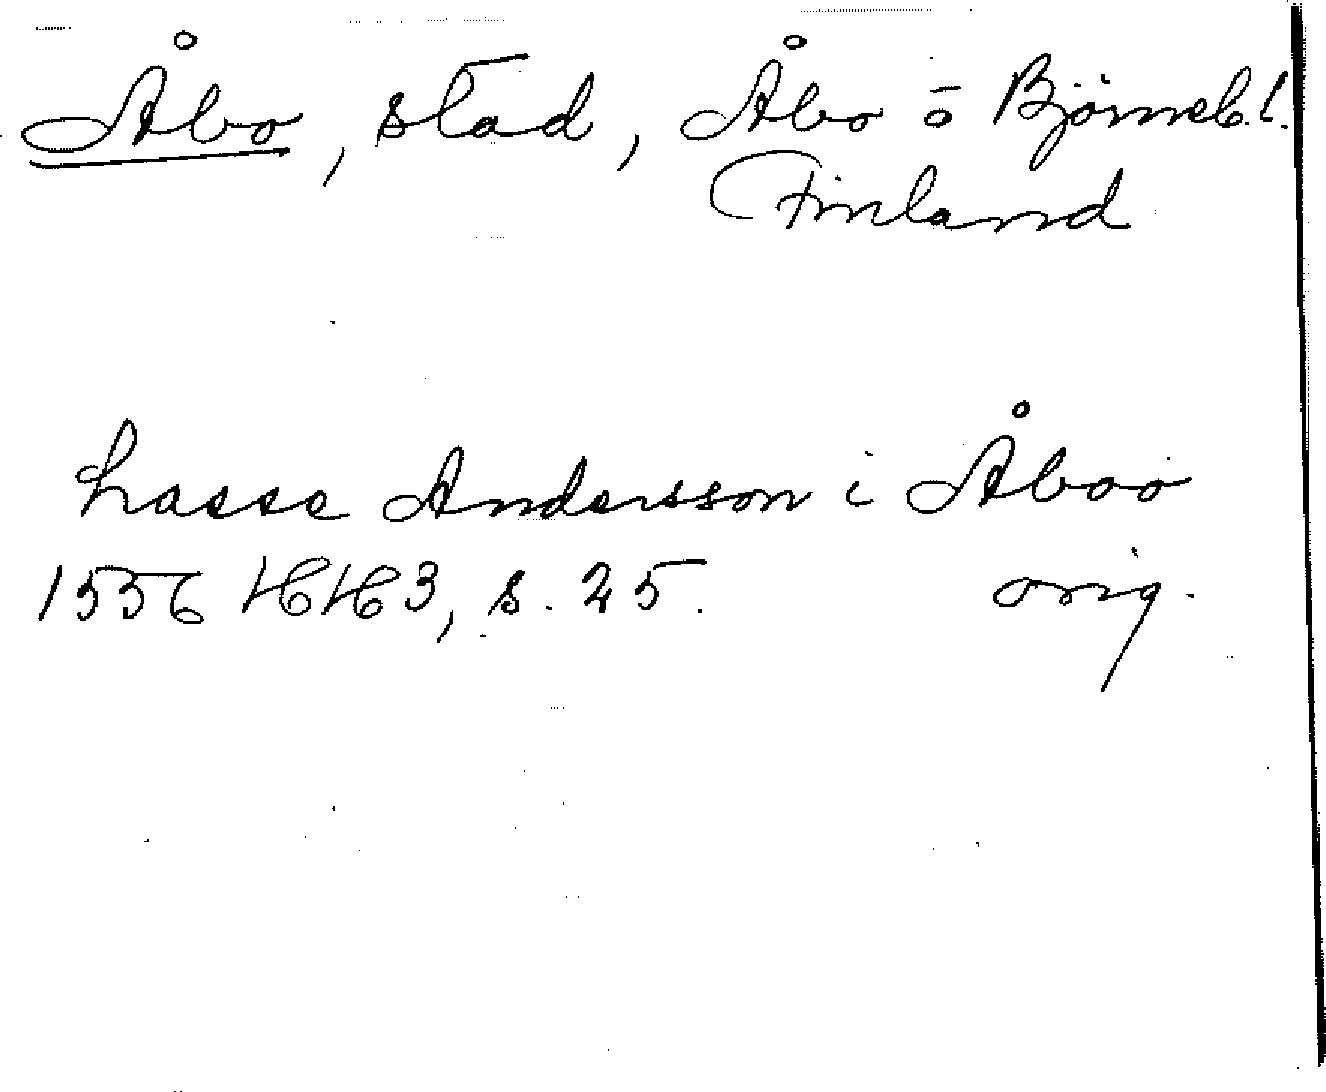 Åbo, stad, Åbo o Björneb. l.
Finland
Lasse Andersson i Åboo
1556 HH 3, s. 25. orig.